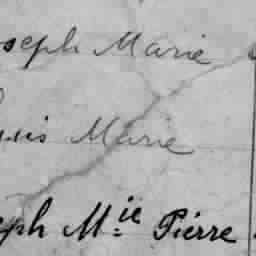 oseph Marie
ouis Marie
eph M.ie Pierre